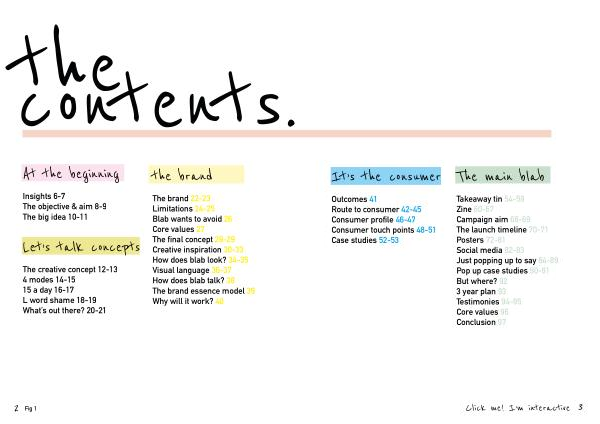 the
contents.
At the beginning
Insights 6-7
The objective & aim 8-9
The big idea 10-11
Let's talk concepts
The creative concept 12-13
4 modes 14-15
15 a day 16-17
L word shame 18-19
What's out there? 20-21
the brand
The brand 22-23
Limitations 24-25
Blab wants to avoid 26
Core values 27
The final concept 28-29
Creative inspiration 30-33
How does blab look? 34-35
Visual language 36-37
How does blab talk? 38
The brand essence model 39
Why will it work? 40
It's the consumer
Outcomes 41
Route to consumer 42-45
Consumer profile 46-47
Consumer touch points 48-51
Case studies 52-53
The main blab
Takeaway tin 54-59
Zine
Campaign aim 68-69
The launch timeline 70-71
Posters
Social media 82-83
Just popping up to say
Pop up case studies
But where?
3 year plan
Testimonies 94-95
Core values 96
Conclusion 97
2 Fig 1
Click me! I'm interactive 3